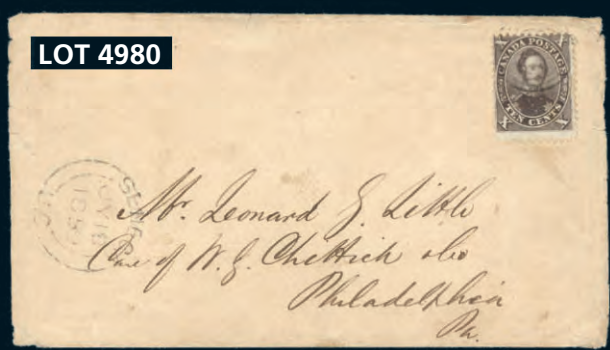 LOT 4980
CANADA POSTAGE
TEN CENTS
X X
Mr. Leonard G. Little
Care of W. G. Chittick
Philadelphia
Pa.